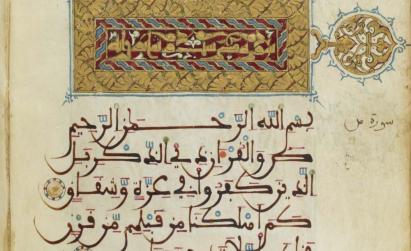 بسم الله الرحمن الرحيم
سورة ص
ص والقرءان ذي الذكر بل
الذين كفروا في عزة وشقاق
كم اهلكنا من قبلهم من قرن